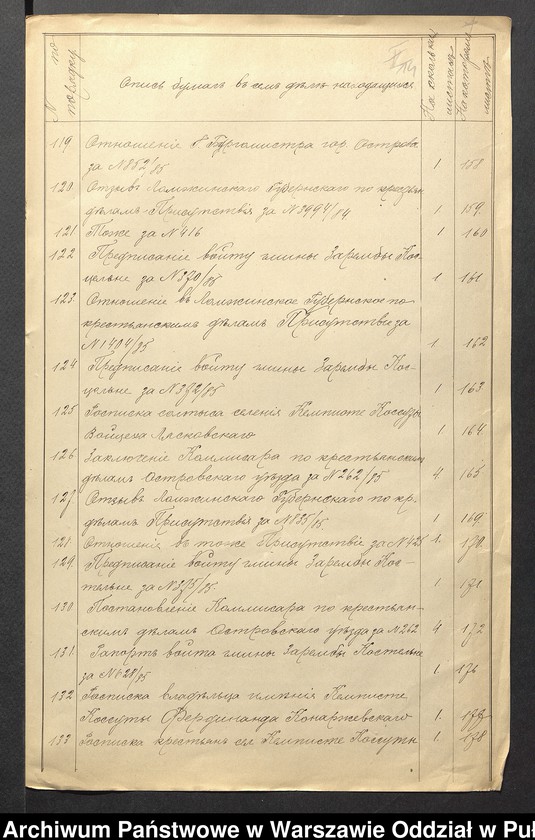 N по порядку
Опись бумагъ въ семъ дѣлѣ находящихся
На сколькихъ листахъ
На которомъ листѣ
119 Отношеніе Г. Бургомистра гор Острова
за N852/85 1 158
120 Отзывъ Ломжинскаго Губернскаго по крестьян
дѣламъ Присутствія за N3994/14 1 159.
121 Тоже за N416 1 160
122 Предписаніе войту гмины Зарембы Кос-
цельне за N370/85 1 161
123. Отношеніе въ Ломжинское Губернское по
крестьянскимъ дѣламъ Присутствіе за
N1404/85 1 162
124 Предписаніе войту гмины Зарембы Кос-
цельне за N392/85 1 163
125 Росписка солтыса селенія Кемписте Коссуты
Войцеха Лясковскаго 1 164
126 Заключеніе Коммисара по крестьянскимъ
дѣламъ Островскаго уѣзда за N262/85 4 165
127 Отзывъ Ломжинскаго Губернскаго по кр.
дѣламъ Присутствія за N835/85 1 169.
121. Отношеніе въ тоже Присутствіе за N425 1. 170
129. Предписаніе войту гмины Зарембы Кос-
тельне за N375/85. 1 171
130 Постановленіе Коммисара по крестьян-
скимъ дѣламъ Островскаго уѣзда за N262 4 172
131 Рапортъ войта гмины Зарембы Костельне
за N628/85 1 176
132 Росписка владѣльца имѣнія Кемписте
Коссуты Фердинанда Конаржевскаго 1. 177
133 Росписка крестьянъ сел Кемписте Коссуты 1 178
Archiwum Państwowe w Warszawie Oddział w Puł